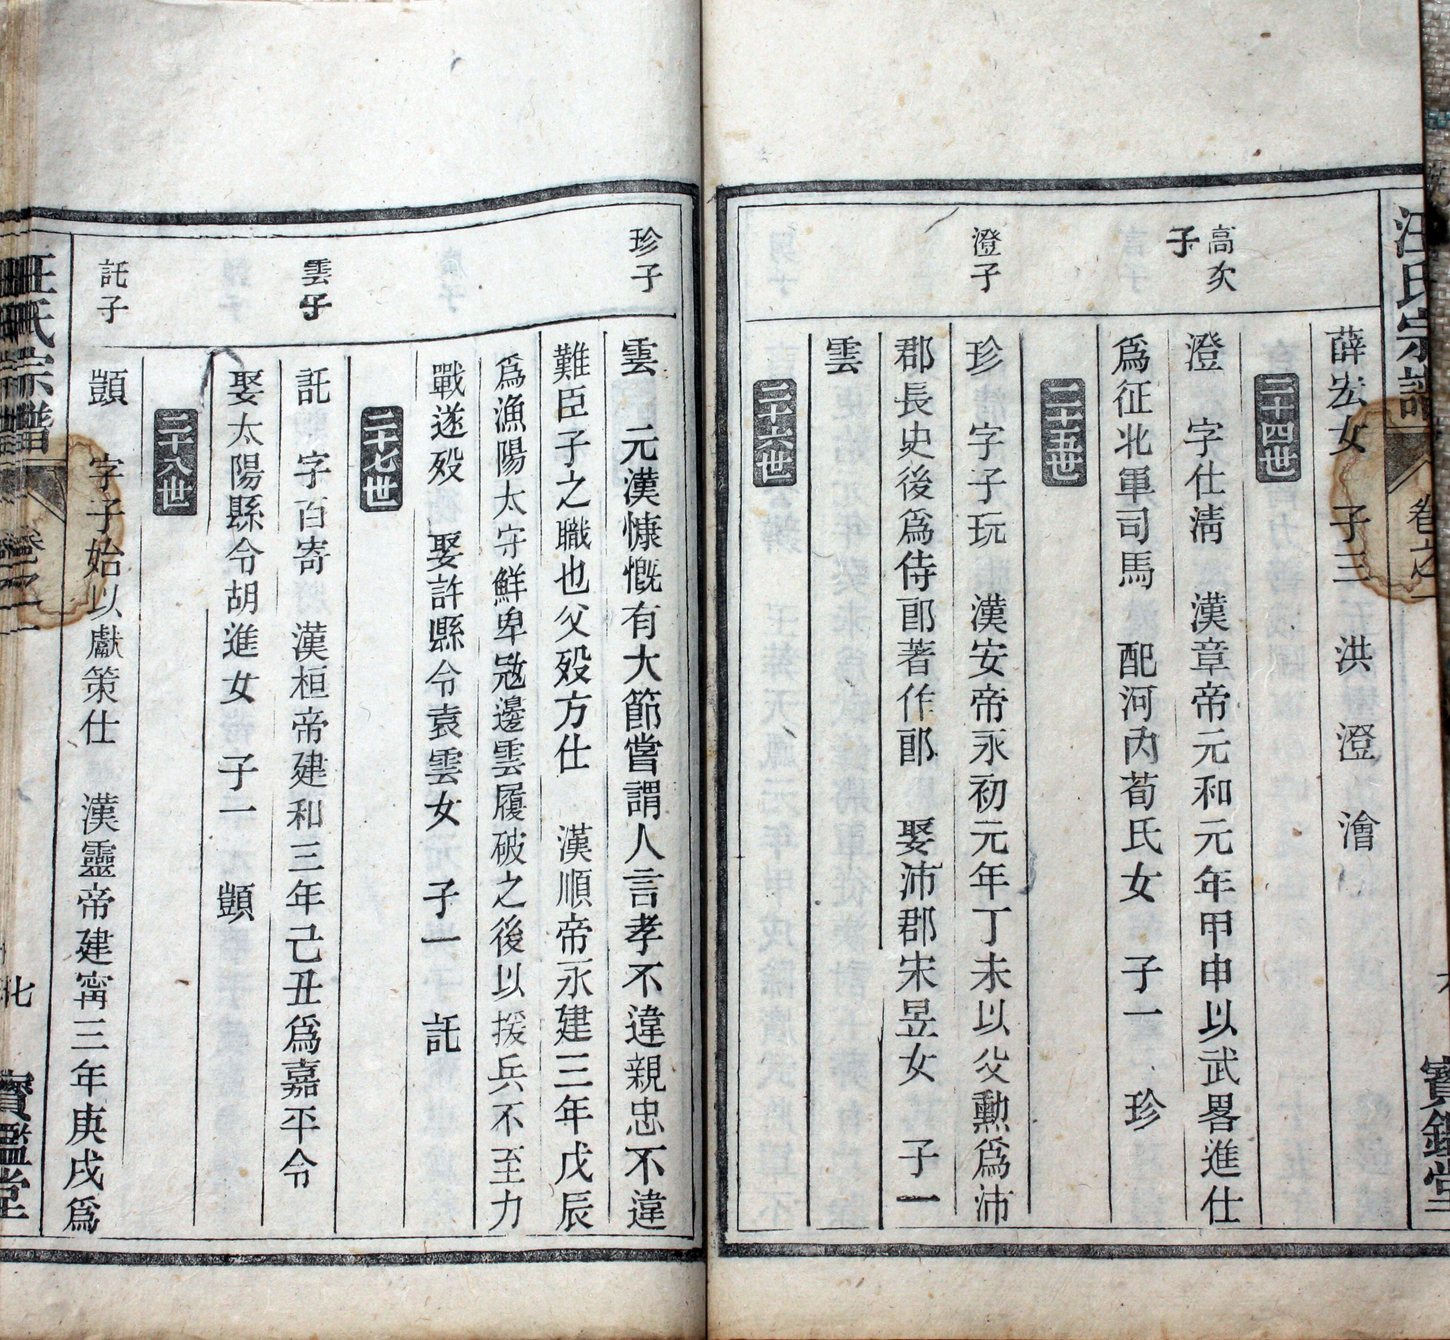 汪氏宗譜 卷之一 寶鑑堂
薛宏女 子三 洪 澄 澮
二十四世
高次子
澄 字仕淸 漢章帝元和元年甲申以武畧進仕
爲征北軍司馬 配河內荀氏女 子一 珍
二十五世
澄子
珍 字子玩 漢安帝永初元年丁未以父勳爲沛
郡長史後爲侍郎著作郎 娶沛郡宋昱女 子一
雲
二十六世
珍子
雲 元漢慷慨有大節嘗謂人言孝不違親忠不違
難臣子之職也父歿方仕 漢順帝永建三年戊辰
爲漁陽太守鮮卑寇邊雲履破之後以援兵不至力
戰遂歿 娶許縣令袁雲女 子一 託
二十七世
雲子
託 字百寄 漢桓帝建和三年己丑爲嘉平令
娶太陽縣令胡進女 子一 顗
二十八世
託子
顗 字子始以獻策仕 漢靈帝建寗三年庚戌爲
汪氏宗譜 卷之一 寶鑑堂